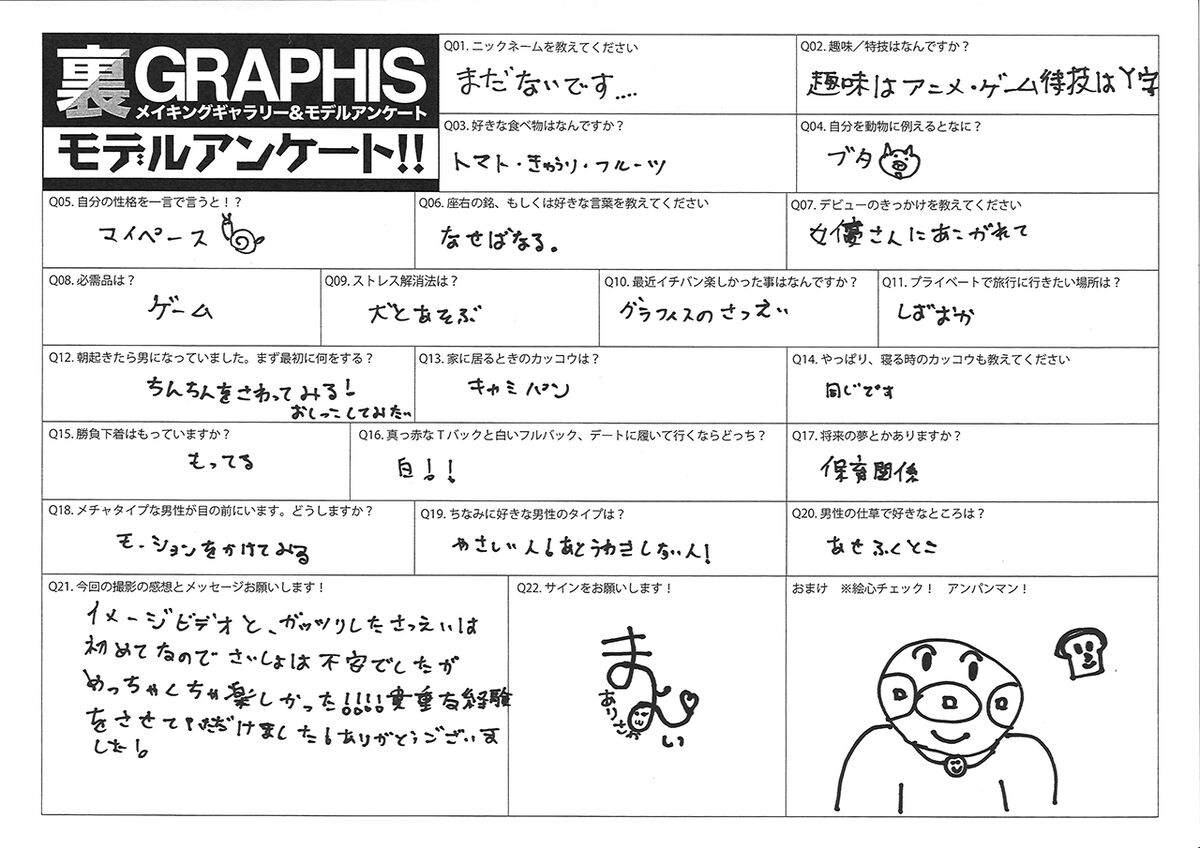 裏GRAPHIS
メイキングギャラリー&モデルアンケート
モデルアンケート!!
Q01. ニックネームを教えてください
まだないです....
Q02. 趣味／特技はなんですか？
趣味はアニメ・ゲーム特技はY字
Q03. 好きな食べ物はなんですか？
トマト・きゅうり・フルーツ
Q04. 自分を動物に例えるとなに？
ブタ
Q05. 自分の性格を一言で言うと！？
マイペース
Q06. 座右の銘、もしくは好きな言葉を教えてください
なせばなる。
Q07. デビューのきっかけを教えてください
女優さんにあこがれて
Q08. 必需品は？
ゲーム
Q09. ストレス解消法は？
犬とあそぶ
Q10. 最近イチバン楽しかった事はなんですか？
グラフィスのさつえい
Q11. プライベートで旅行に行きたい場所は？
Q12. 朝起きたら男になっていました。まず最初に何をする？
ちんちんをさわってみる!
おしっこしてみたい
Q13. 家に居るときのカッコウは？
キャミパン
Q14. やっぱり、寝る時のカッコウも教えてください
同じです
Q15. 勝負下着はもっていますか？
もってる
Q16. 真っ赤なTバックと白いフルバック、デートに履いて行くならどっち？
白!!
Q17. 将来の夢とかありますか？
保育関係
Q18. メチャタイプな男性が目の前にいます。どうしますか？
モーションをかけてみる
Q19. ちなみに好きな男性のタイプは？
やさしい人!あとうわきしない人!
Q20. 男性の仕草で好きなところは？
あせふくとこ
Q21. 今回の撮影の感想とメッセージお願いします！
イメージビデオと、ガッツリしたさつえいは
初めてなのでさいしょは不安でしたが
めっちゃくちゃ楽しかった!!!!貴重な経験
をさせていただけました!ありがとうございま
した!
Q22. サインをお願いします！
おまけ　※絵心チェック！　アンパンマン！